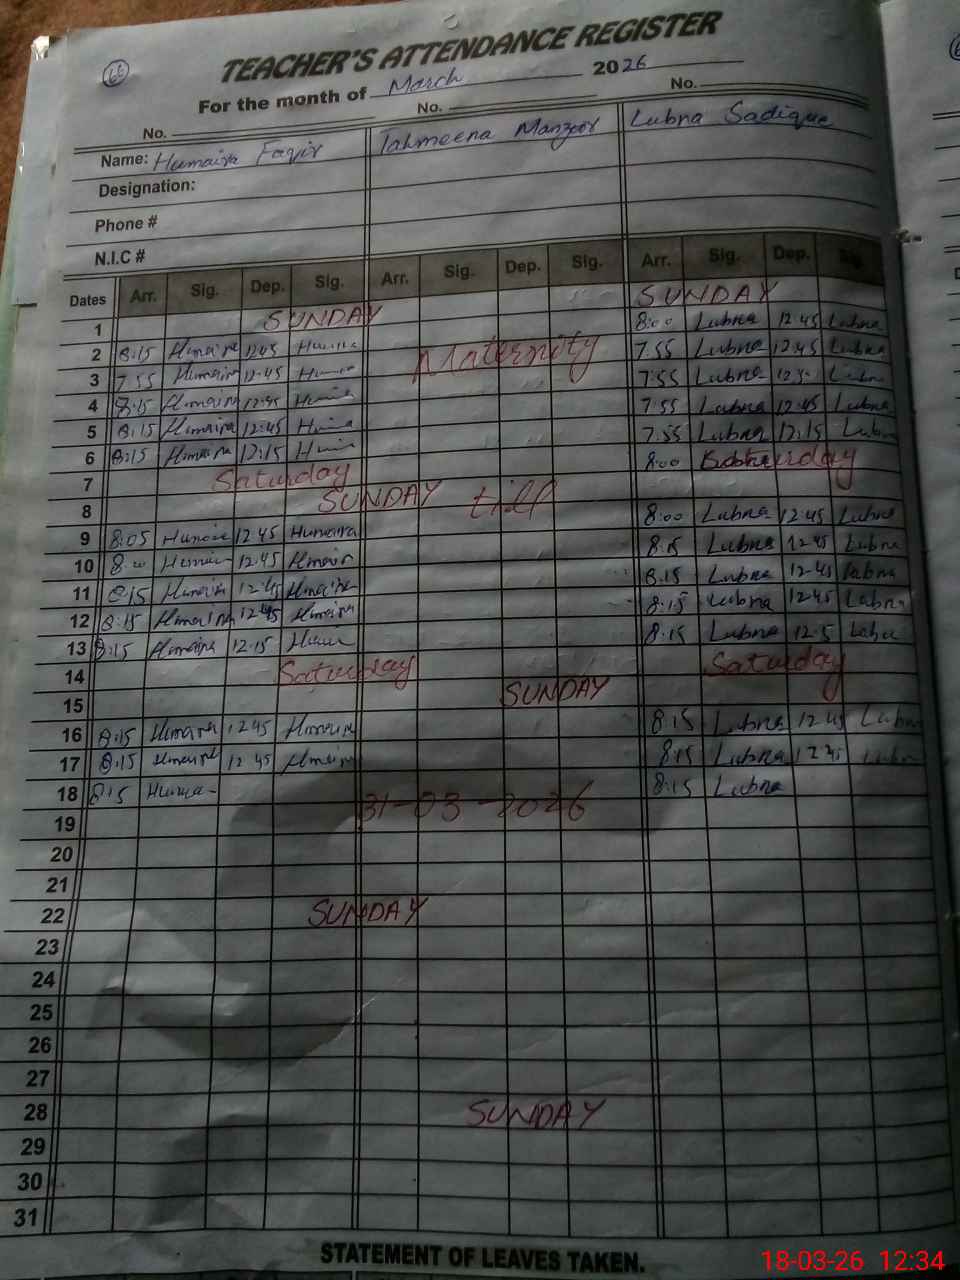 66
TEACHER'S ATTENDANCE REGISTER
For the month of March 2026
No. No. No.
Name: Humaira Faqir Tahmeena Manzoor Lubna Sadique
Designation:
Phone #
N.I.C #
Dates Arr. Sig. Dep. Sig. Arr. Sig. Dep. Sig. Arr. Sig. Dep. Sig.
1 SUNDAY SUNDAY
2 8:15 Humaira 12:45 Maternity 8:00 Lubna 12:45 Lubna
3 7:55 Humaira 12:45 7:55 Lubna 12:45 Lubna
4 8:15 Humaira 12:45 7:55 Lubna Lubna
5 8:15 Humaira 12:45 7:55 Lubna 12:45 Lubna
6 8:15 Humaira 12:15 7:55 Lubna 12:15 Lubna
7 Saturday 8:00 Saturday
8 SUNDAY till
9 8:05 12:45 Humaira 8:00 Lubna 12:45 Lubna
10 12:45 Humaira 8:15 Lubna 12:45 Lubna
11 8:15 Humaira 12:45 Humaira 8:15 Lubna 12:45 Lubna
12 8:15 Humaira 12:45 Humaira 8:15 Lubna 12:45 Lubna
13 8:15 Humaira 12:15 8:15 Lubna
14 Saturday Saturday
15 SUNDAY
16 8:15 Humaira 12:45 Humaira 8:15 Lubna 12:45 Lubna
17 8:15 Humaira 12:45 Humaira 8:15 Lubna 12:45 Lubna
18 8:15 31-03-2026 8:15 Lubna
19
20
21
22 SUNDAY
23
24
25
26
27
28 SUNDAY
29
30
31
STATEMENT OF LEAVES TAKEN.
18-03-26 12:34